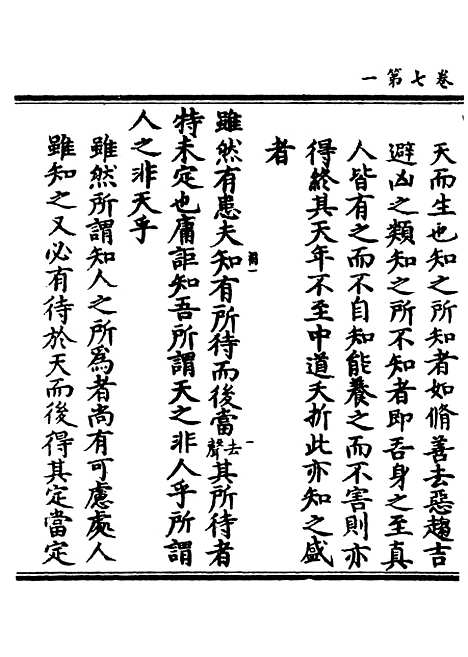 卷七第一
天而生也知之所知者如脩善去惡趨吉
避凶之類知之所不知者即吾身之至真
人皆有之而不自知能養之而不害則亦
得終其天年不至中道夭折此亦知之盛
者
雖然有患夫知有所待而後當去聲其所待者
特未定也庸詎知吾所謂天之非人乎所謂
人之非天乎
雖然所謂知人之所為者尚有可慮處人
雖知之又必有待於天而後得其定當定